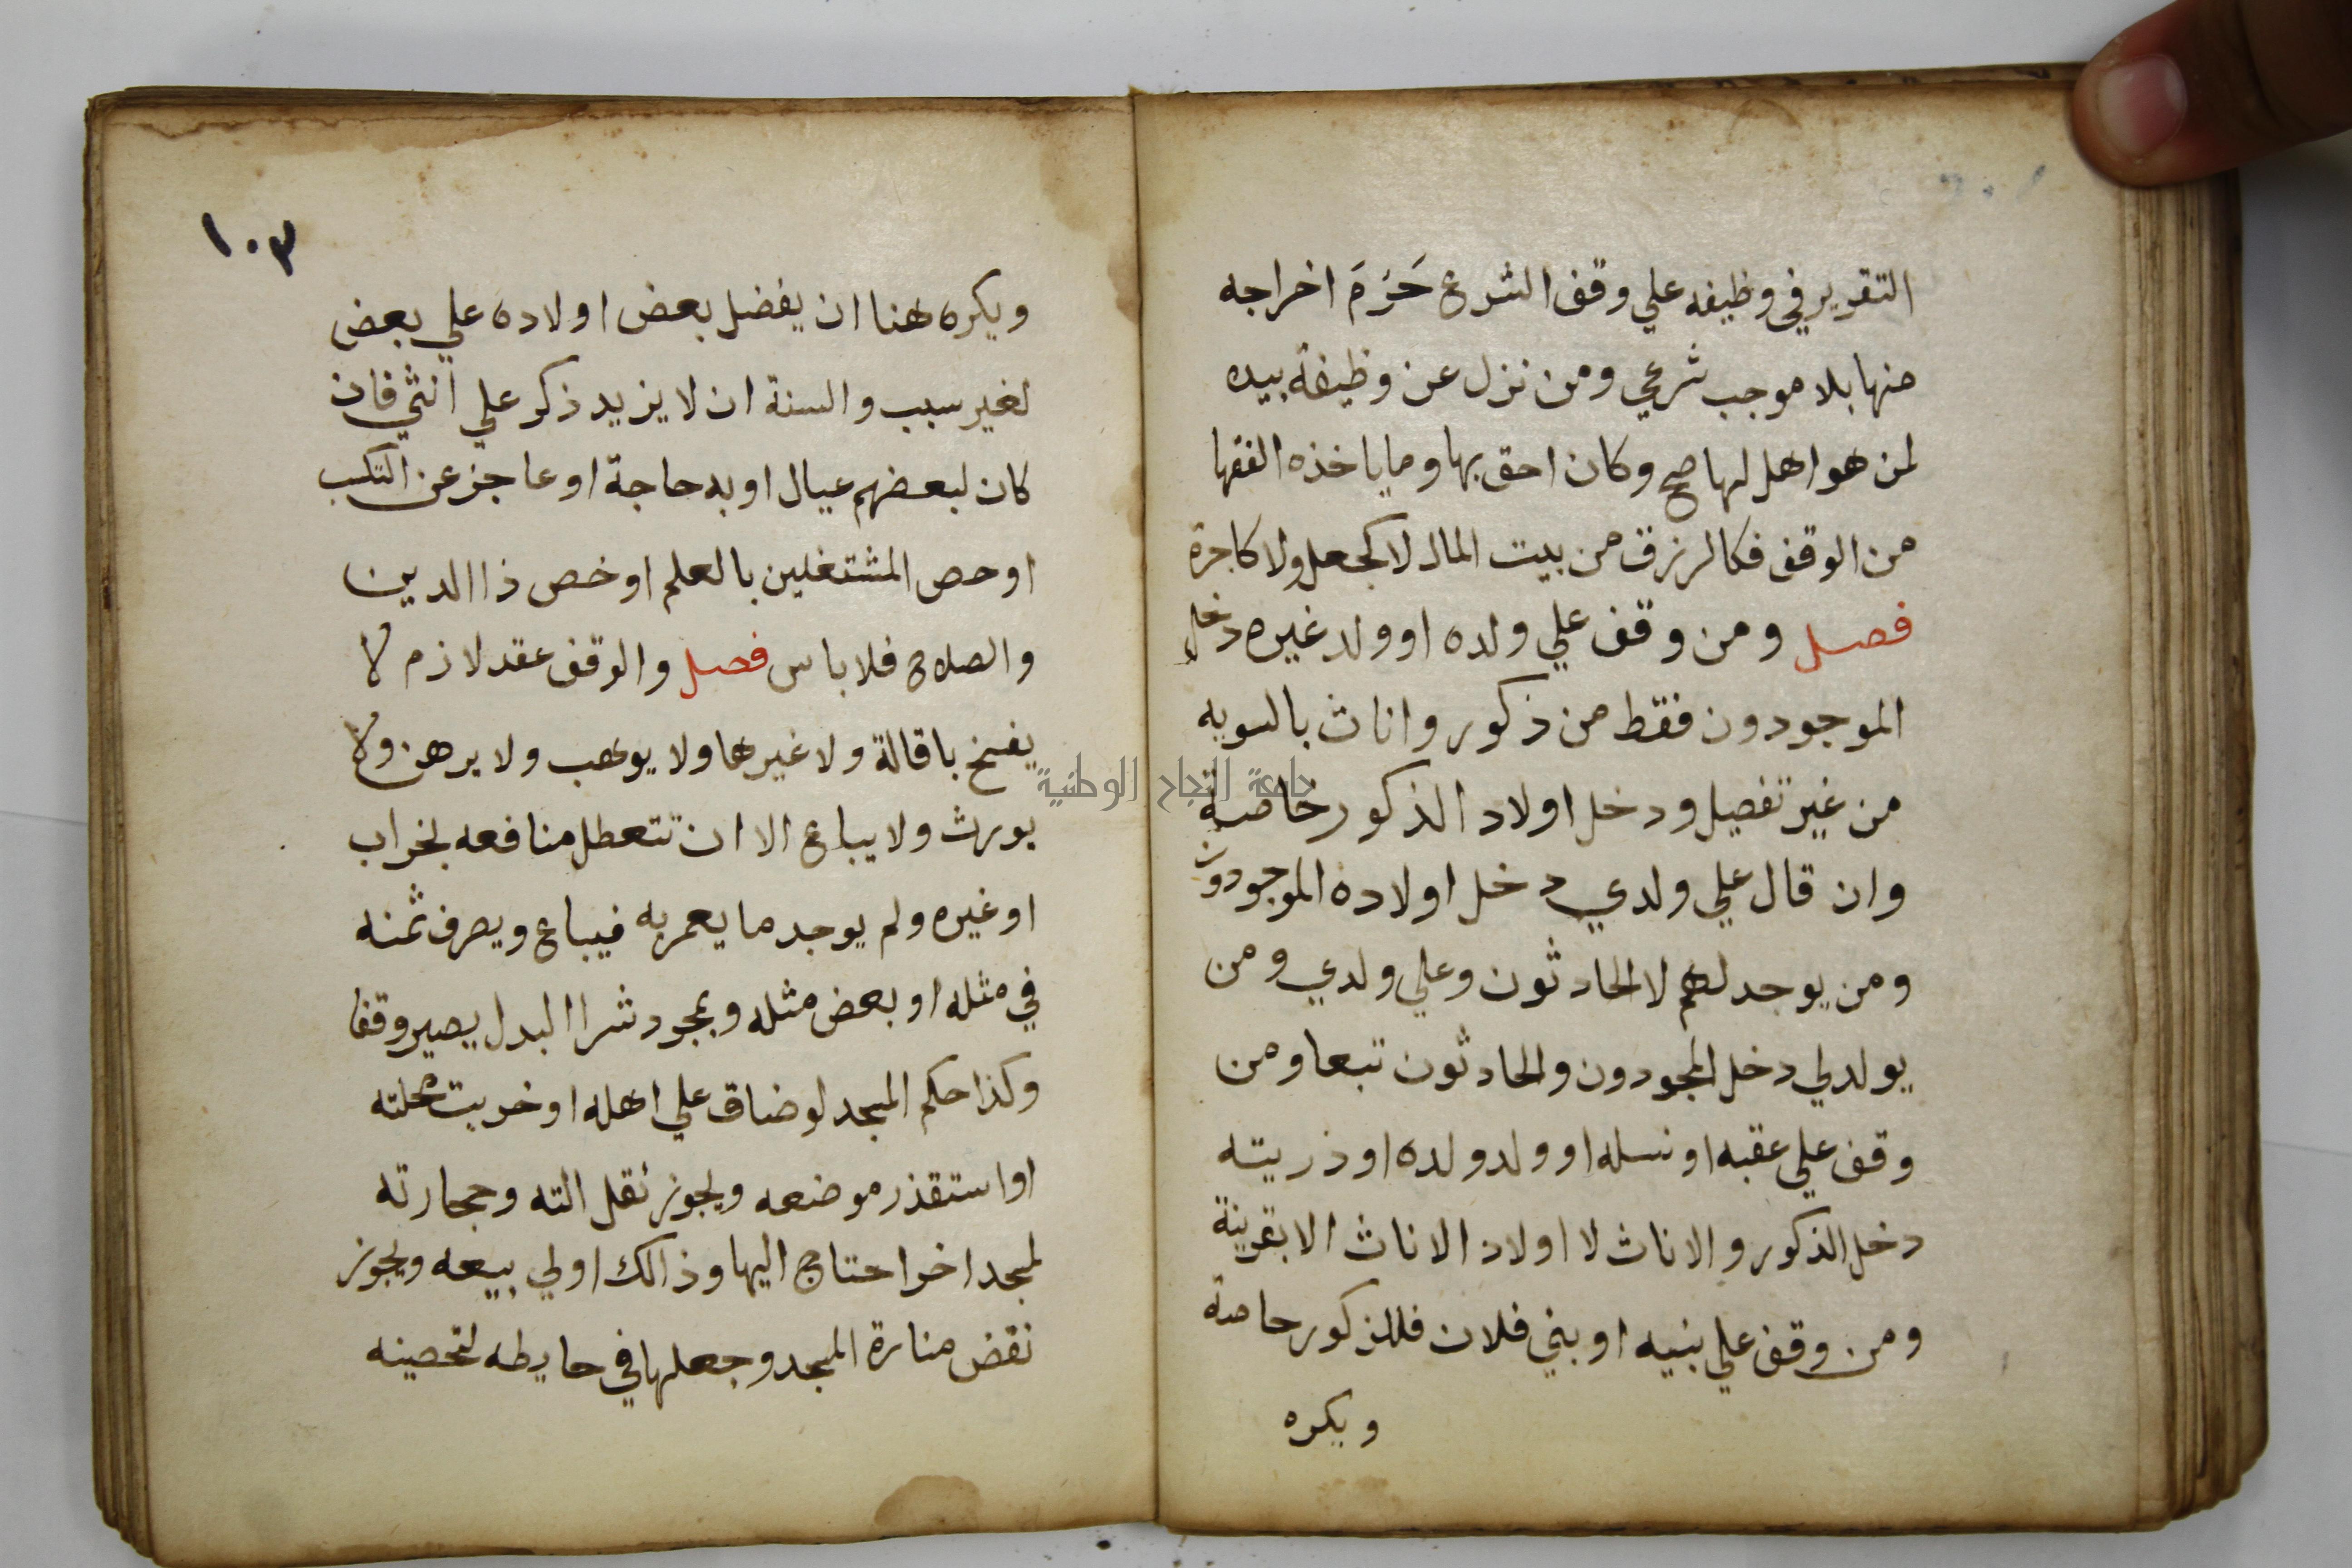 التقرير في وظيفه علي وقف الشرع حَرُمَ اخراجه
منها بلا موجب شرعي ومن نزل عن وظيفة بيده
لمن هو اهل لها صح وكان احق بها وما ياخذه الفقها
من الوقف فكالرزق من بيت المال لا كجعل ولا كاجرة
فصل ومن وقف علي ولده او ولد غيره دخل
الموجودون فقط من ذكور واناث بالسويه
من غير تفصيل ودخل اولاد الذكور خاصة
وان قال علي ولدي دخل اولاده الموجودون
ومن يوحد لهم لا الحادثون وعلي ولدي ومن
يولد لي دخل المجودون والحادثون تبعا ومن
وقف علي عقبه او نسله او ولد ولده او ذريته
دخل الذكور والاناث لا اولاد الاناث الا بقرينة
ومن وقف علي بنيه او بني فلان فللذكور حاصة
ويكره
١٠٣
ويكره هنا ان يفضل بعض اولاده علي بعض
لغير سبب والسنة ان لا يزيد ذكر علي انثي فان
كان لبعضهم عيال او به حاجة او عاجز عن التكسب
او حص المشتغلين بالعلم او خص ذا الدين
والصلاح فلا باس فصل والوقف عقد لازم لا
يفسخ باقالة ولا غيرها ولا يوهب ولا يرهن ولا
يورث ولا يباع الا ان تتعطل منافعه بخراب
او غيره ولم يوجد ما يعمر به فيباع ويصرف ثمنه
في مثله او بعض مثله وبمجرد شرا البدل يصير وقفا
وكذا حكم المسجد لو ضاق علي اهله او خربت محلته
او استقذر موضعه ويجوز نقل الته وحجارته
لمسجد اخر احتاج اليها وذالك اولي بيعه ويجوز
نقض منارة المسجد وجعلها في حايطه لتحصينه
جامعة النجاح الوطنية